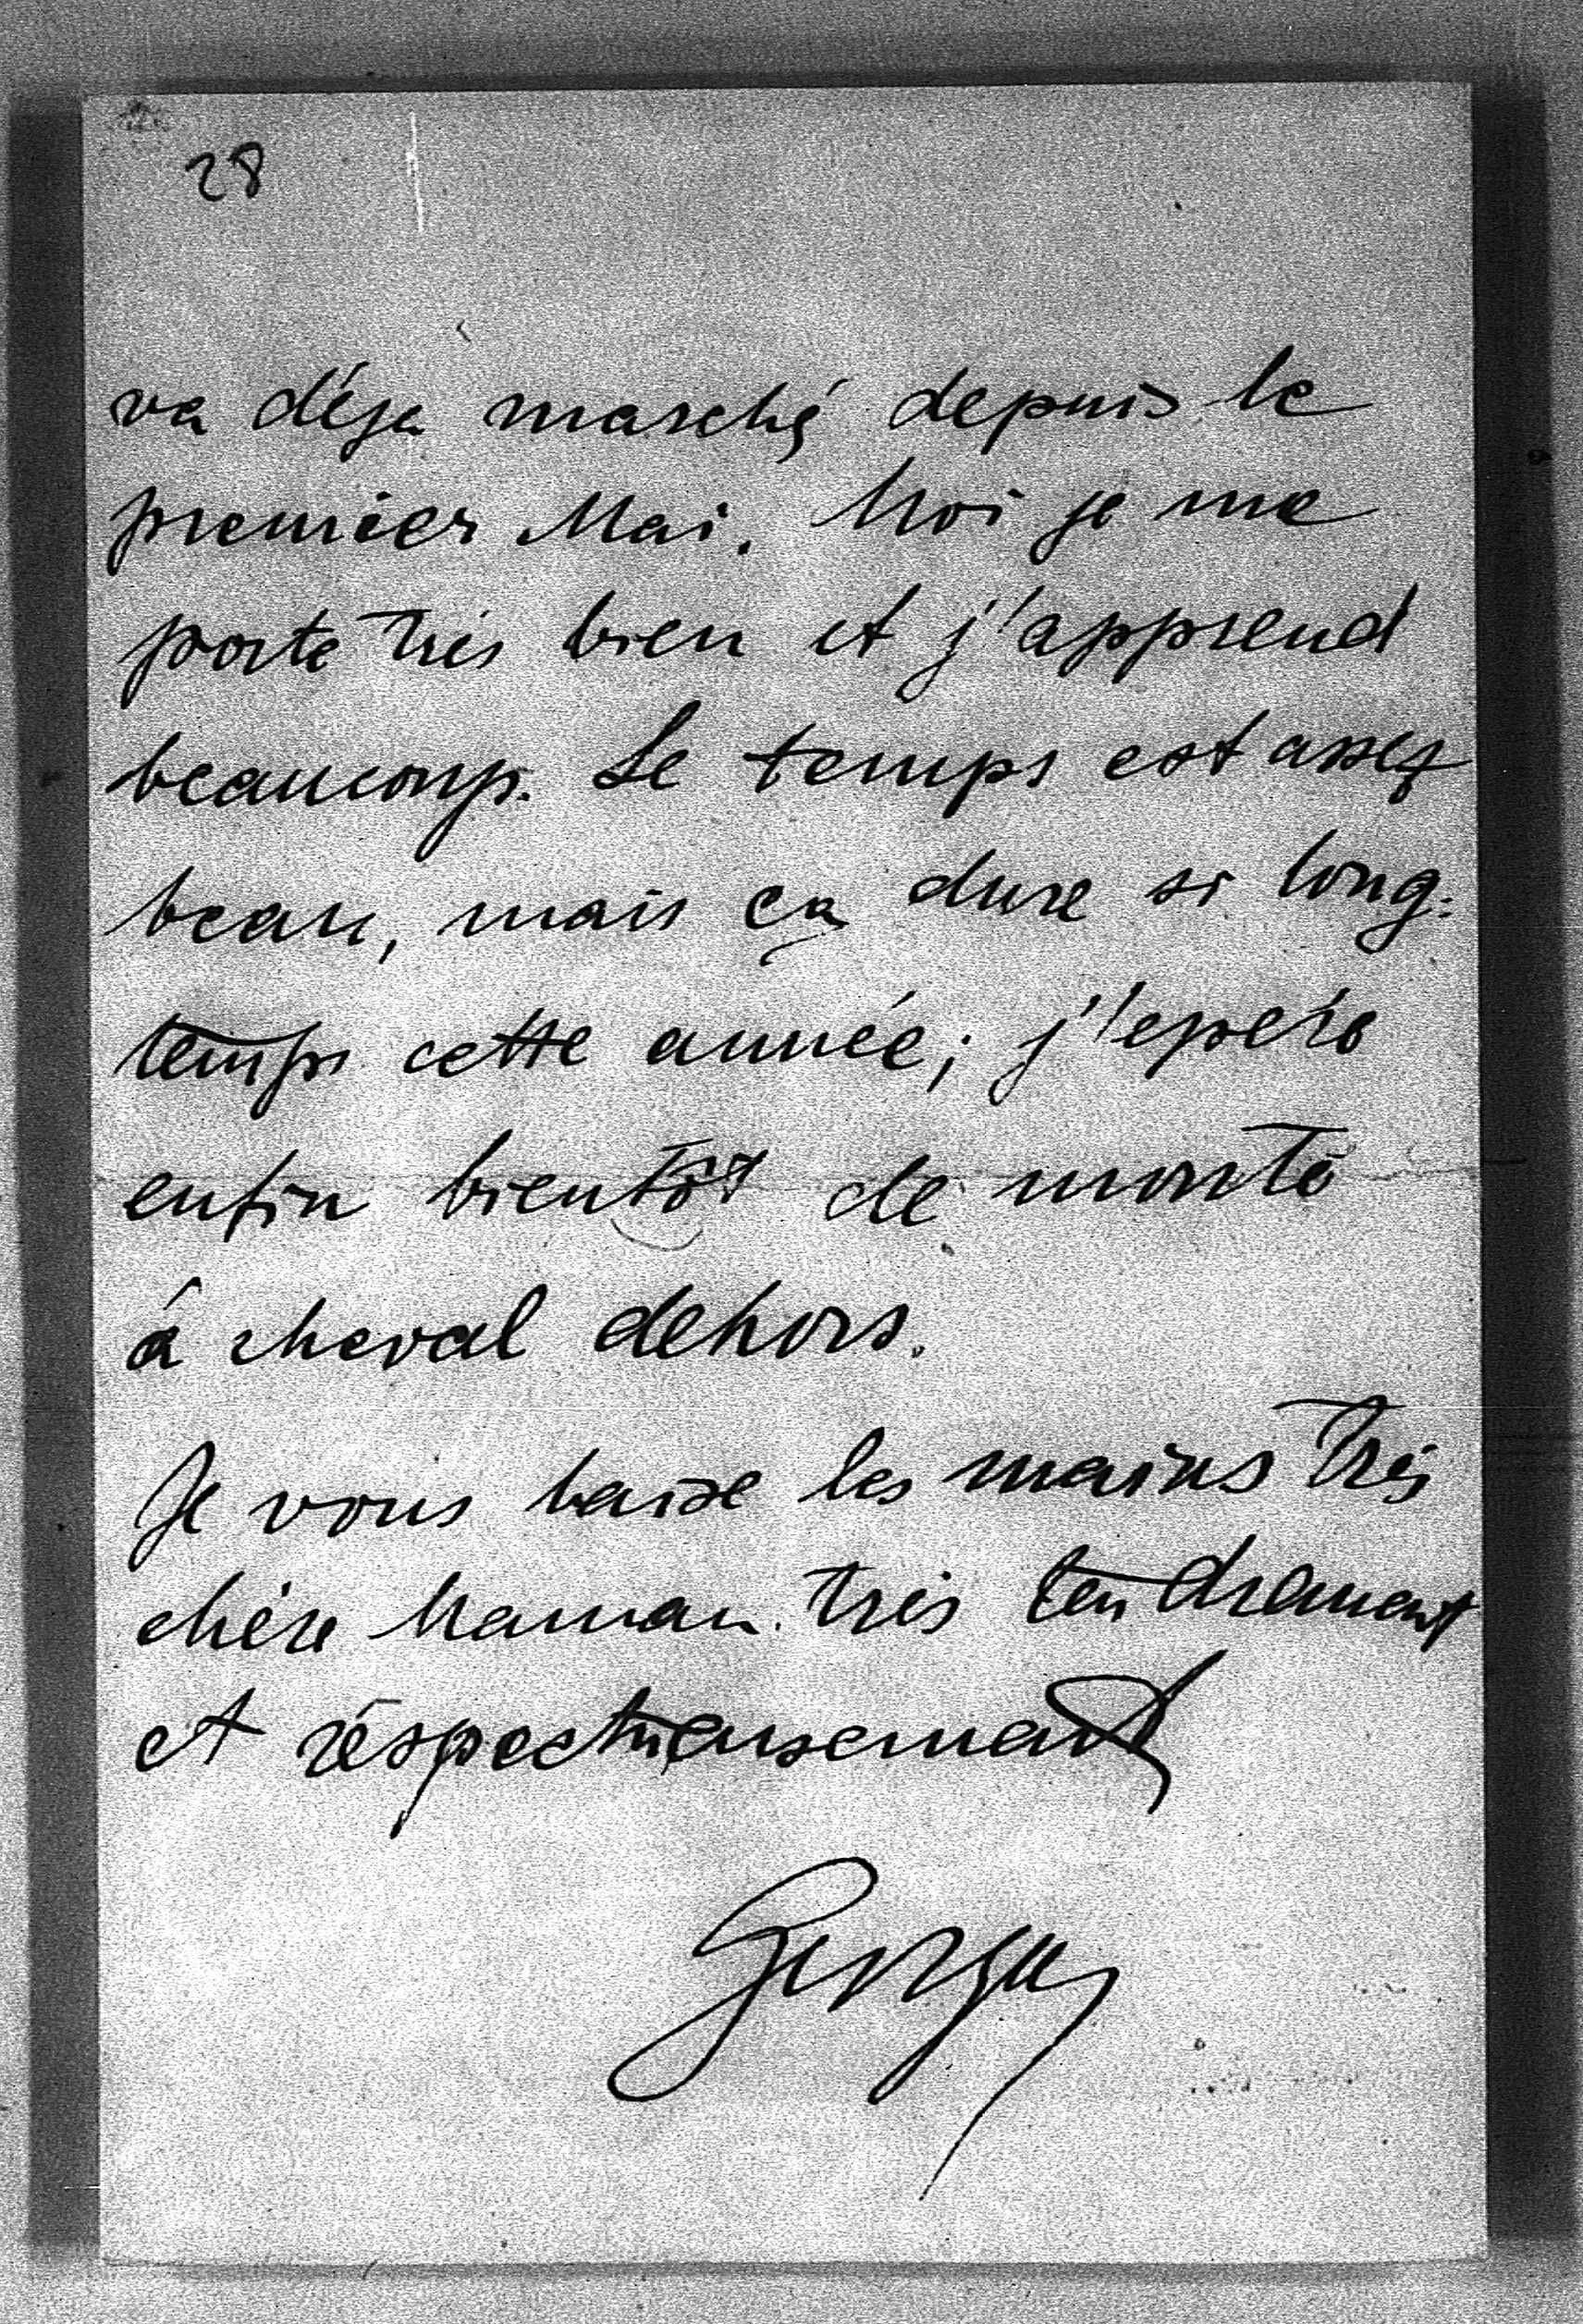 28
va déja marché depuis le
premier Mai. Moi je me
porte très bien et j'apprend
beaucoup. Le temps est assez
beau, mais ça dure si long:
temps cette année; j'epère
enfin bientôt de monté
á cheval dehors.
Je vous baise les mains très
chère Maman très tendrement
et réspectueusement
Georges